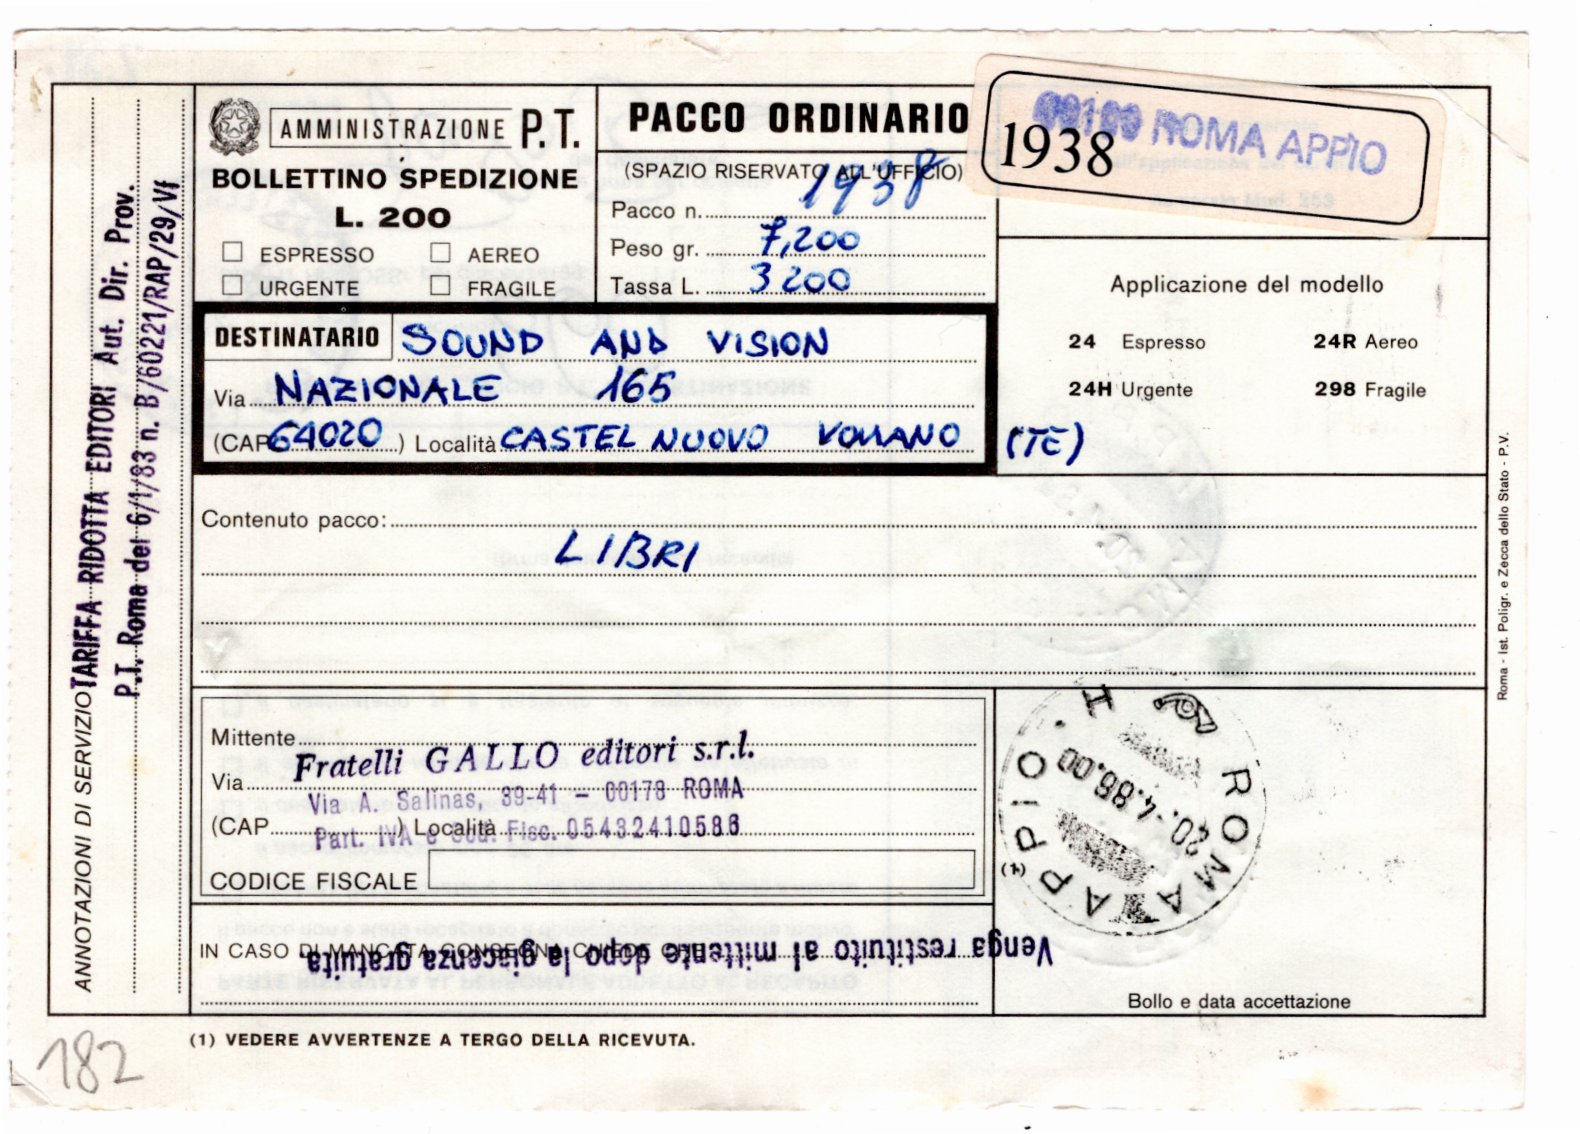 AMMINISTRAZIONE P.T.
BOLLETTINO SPEDIZIONE
L. 200
ESPRESSO AEREO
URGENTE FRAGILE
PACCO ORDINARIO
(SPAZIO RISERVATO ALL'UFFICIO)
Pacco n. 1938
Peso gr. 7,200
Tassa L. 3200
1938 ROMA APPIO
Applicazione del modello
24 Espresso 24R Aereo
24H Urgente 298 Fragile
DESTINATARIO SOUND AND VISION
Via NAZIONALE 165
(CAP 64020) Località CASTEL NUOVO VOMANO (TE)
Contenuto pacco:
LIBRI
Mittente
Fratelli GALLO editori s.r.l.
Via
Via A. Salinas, 39-41 – 00178 ROMA
(CAP ) Località
Part. IVA e Cod. Fisc. 05432410586
CODICE FISCALE
IN CASO DI MANCATA CONSEGNA CHIEDE CHE
Venga restituito al mittente dopo la giacenza gratuita.
ROMA APPIO
20.-4.86.00
(1)
Bollo e data accettazione
(1) VEDERE AVVERTENZE A TERGO DELLA RICEVUTA.
182
ANNOTAZIONI DI SERVIZIO
TARIFFA RIDOTTA EDITORI Aut. Dir. Prov.
P.T. Roma del 6/1/83 n. B/60221/RAP/29/VI
Roma - Ist. Poligr. e Zecca dello Stato - P.V.